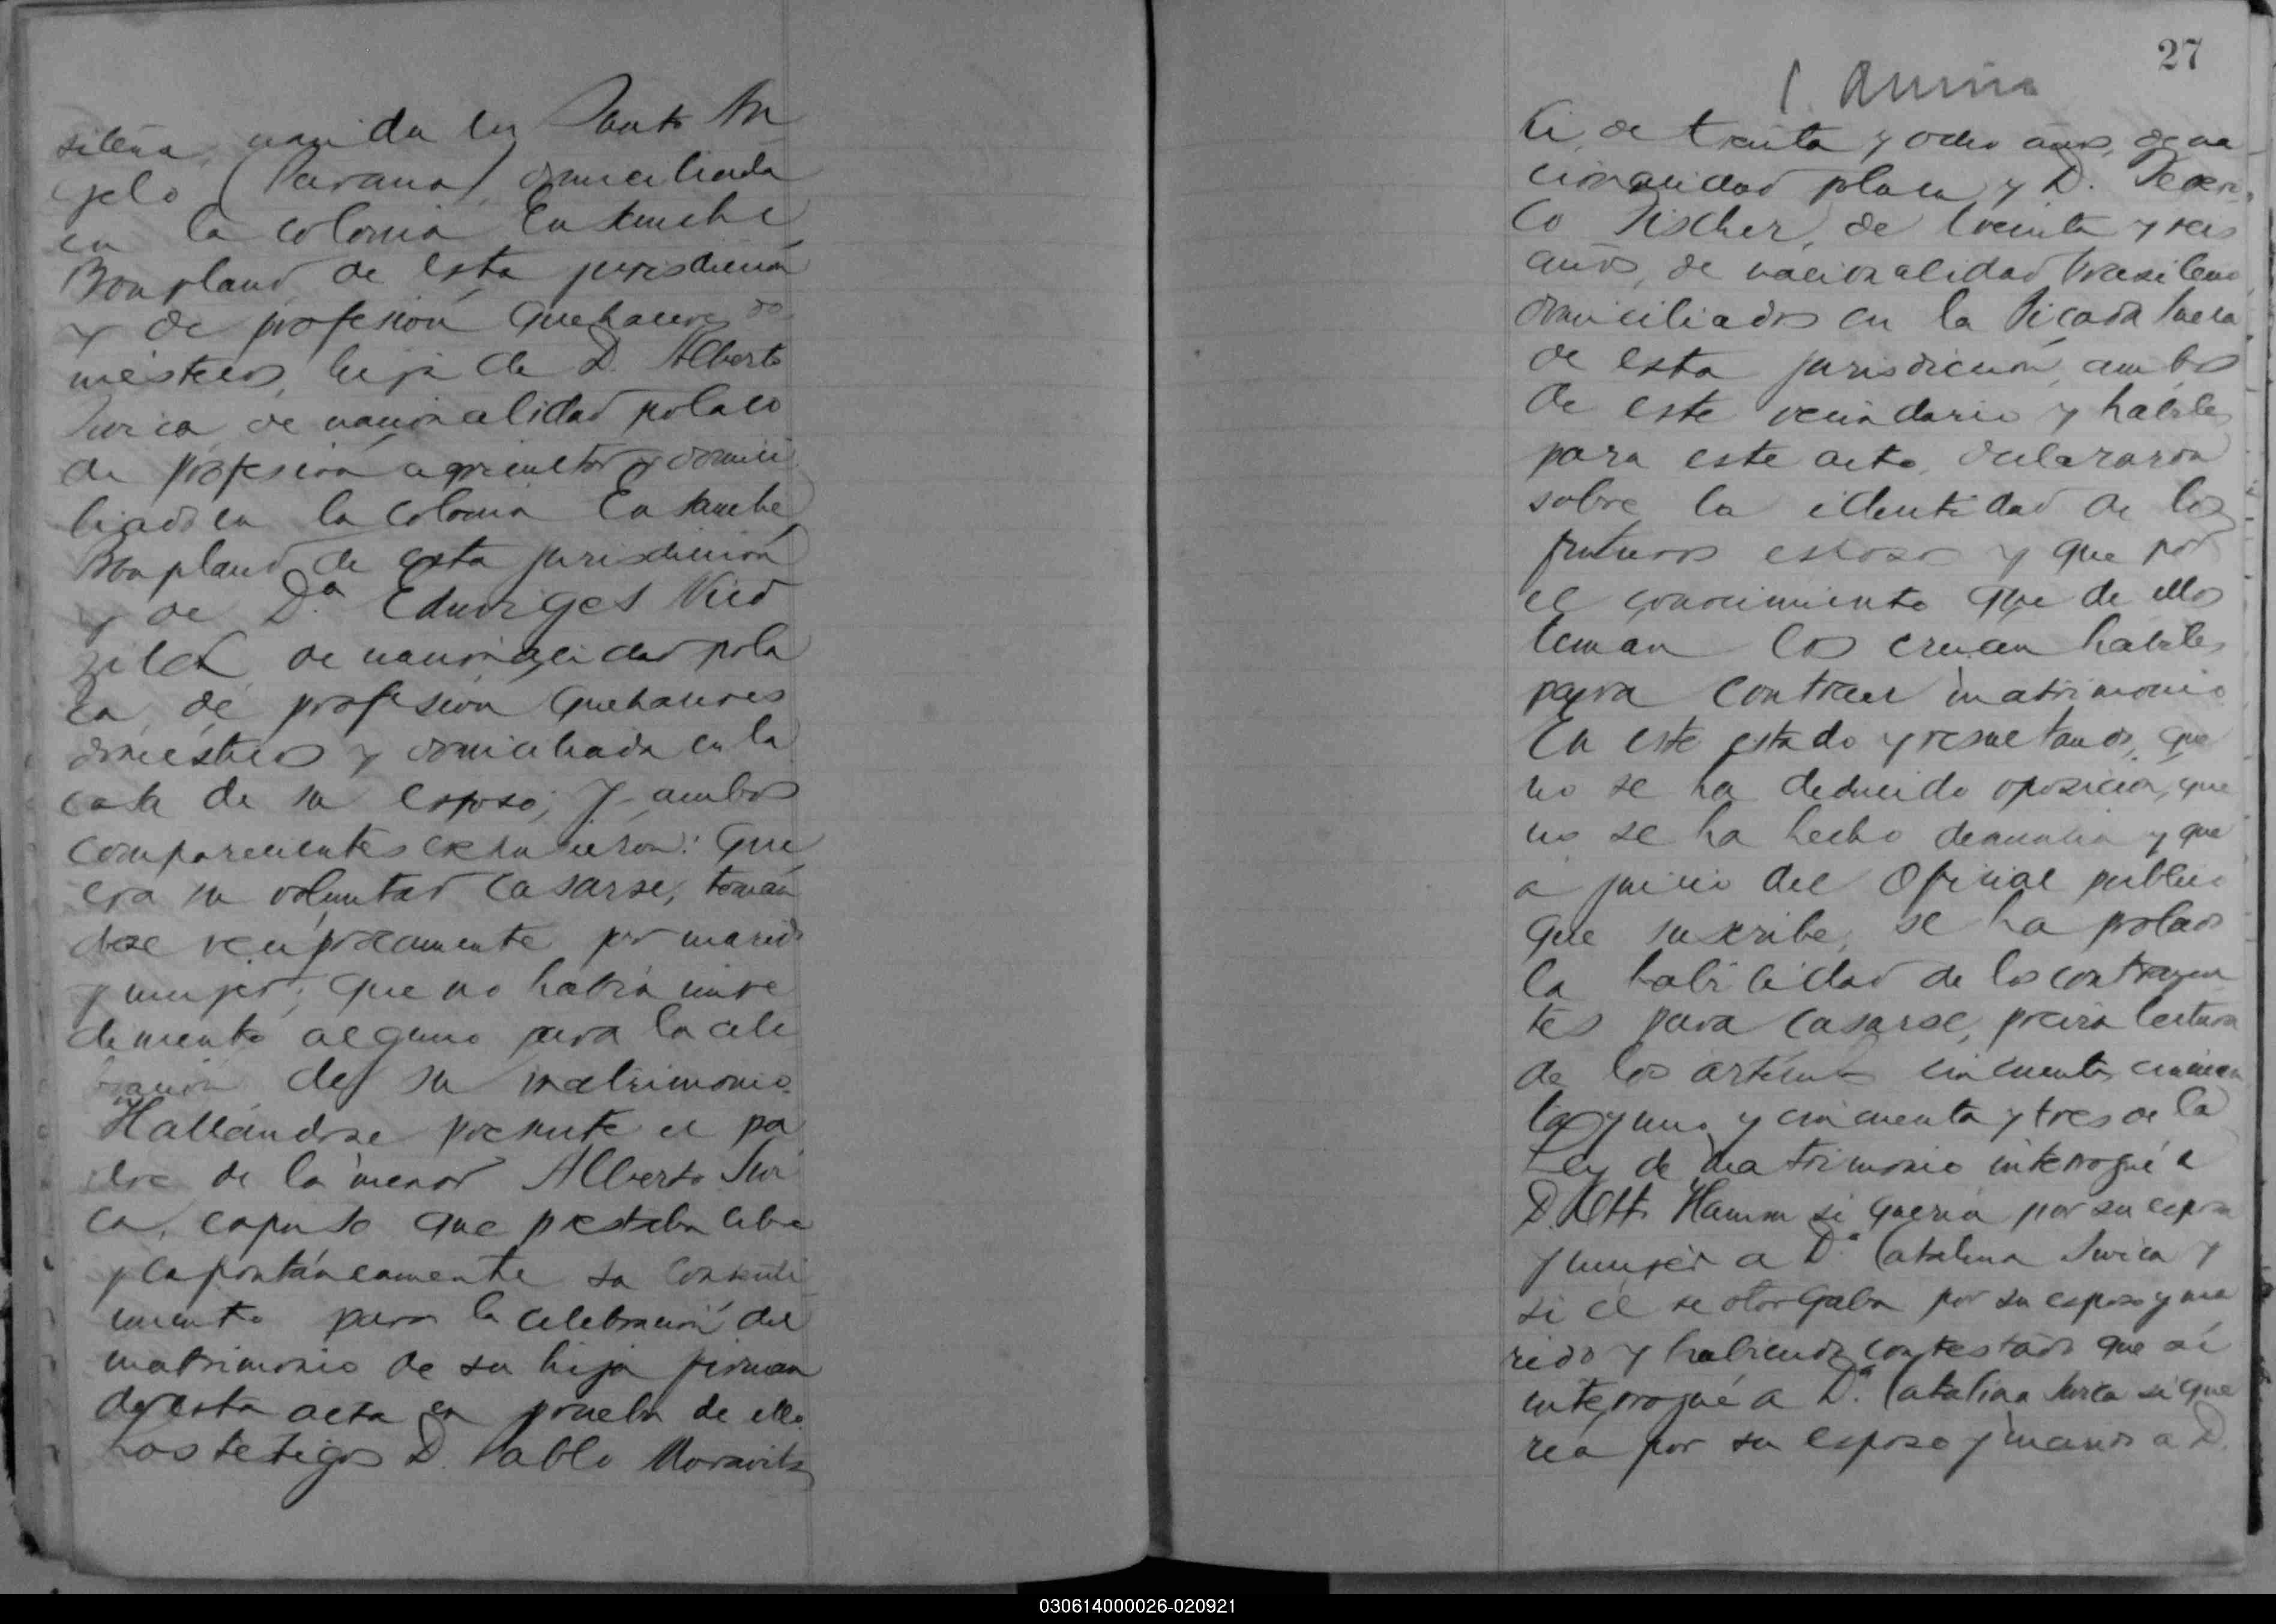 sileña, nacida en Santo An
gelo (Paraná) domiciliada
en la colonia Ensanche
Bonpland de esta jurisdicción
y de profesión quehaceres do
mésticos, hija de D. Alberto
Surica de nacionalidad polaco
de profesión agricultor y domici
liado en la colonia Ensanche
Bonpland de esta jurisdicción
y de D.ª Eduviges Nied
de nacionalidad pola
ca, de profesión quehaceres
domésticos y domiciliada en la
casa de su esposo; y ambos
comparecientes expusieron: que
era su voluntad casarse, tomán
dose recíprocamente por marido
y mujer; que no había impe
dimento alguno para la cele
bración de su matrimonio.
Hallándose presente el pa
dre de la menor Alberto Suri
ca, expuso que prestaba libre
y espontáneamente su consenti
miento para la celebración del
matrimonio de su hija firman
do esta acta en prueba de ello.
Los testigos D. Pablo Moravits
27
ki, de treinta y ocho años, de na
cionalidad polaca y D. Federi
co Fischer, de treinta y seis
años, de nacionalidad brasileno,
domiciliados en la Picada
de esta jurisdicción, ambos
de este vecindario y hábiles
para este acto, declararon
sobre la identidad de los
futuros esposos y que por
el conocimiento que de ellos
tenian los creían hábiles
para contraer matrimonio
En este estado y resultando, que
no se ha deducido oposición, que
no se ha hecho denuncia y que
a juicio del Oficial público
que suscribe, se ha probado
la habilidad de los contrayen
tes para casarse, previa lectura
de los artículos cincuenta, cincuen
ta y uno y cincuenta y tres de la
Ley de matrimonio interrogué a
D. Otto Hamm si quería por su esposa
y mujer a D.ª Catalina Surica y
si él se otorgaba por su esposo y ma
rido y habiendo contestado que sí
interrogué a D.ª Catalina Surica si que
ría por su esposo y marido a D.
030614000026-020921